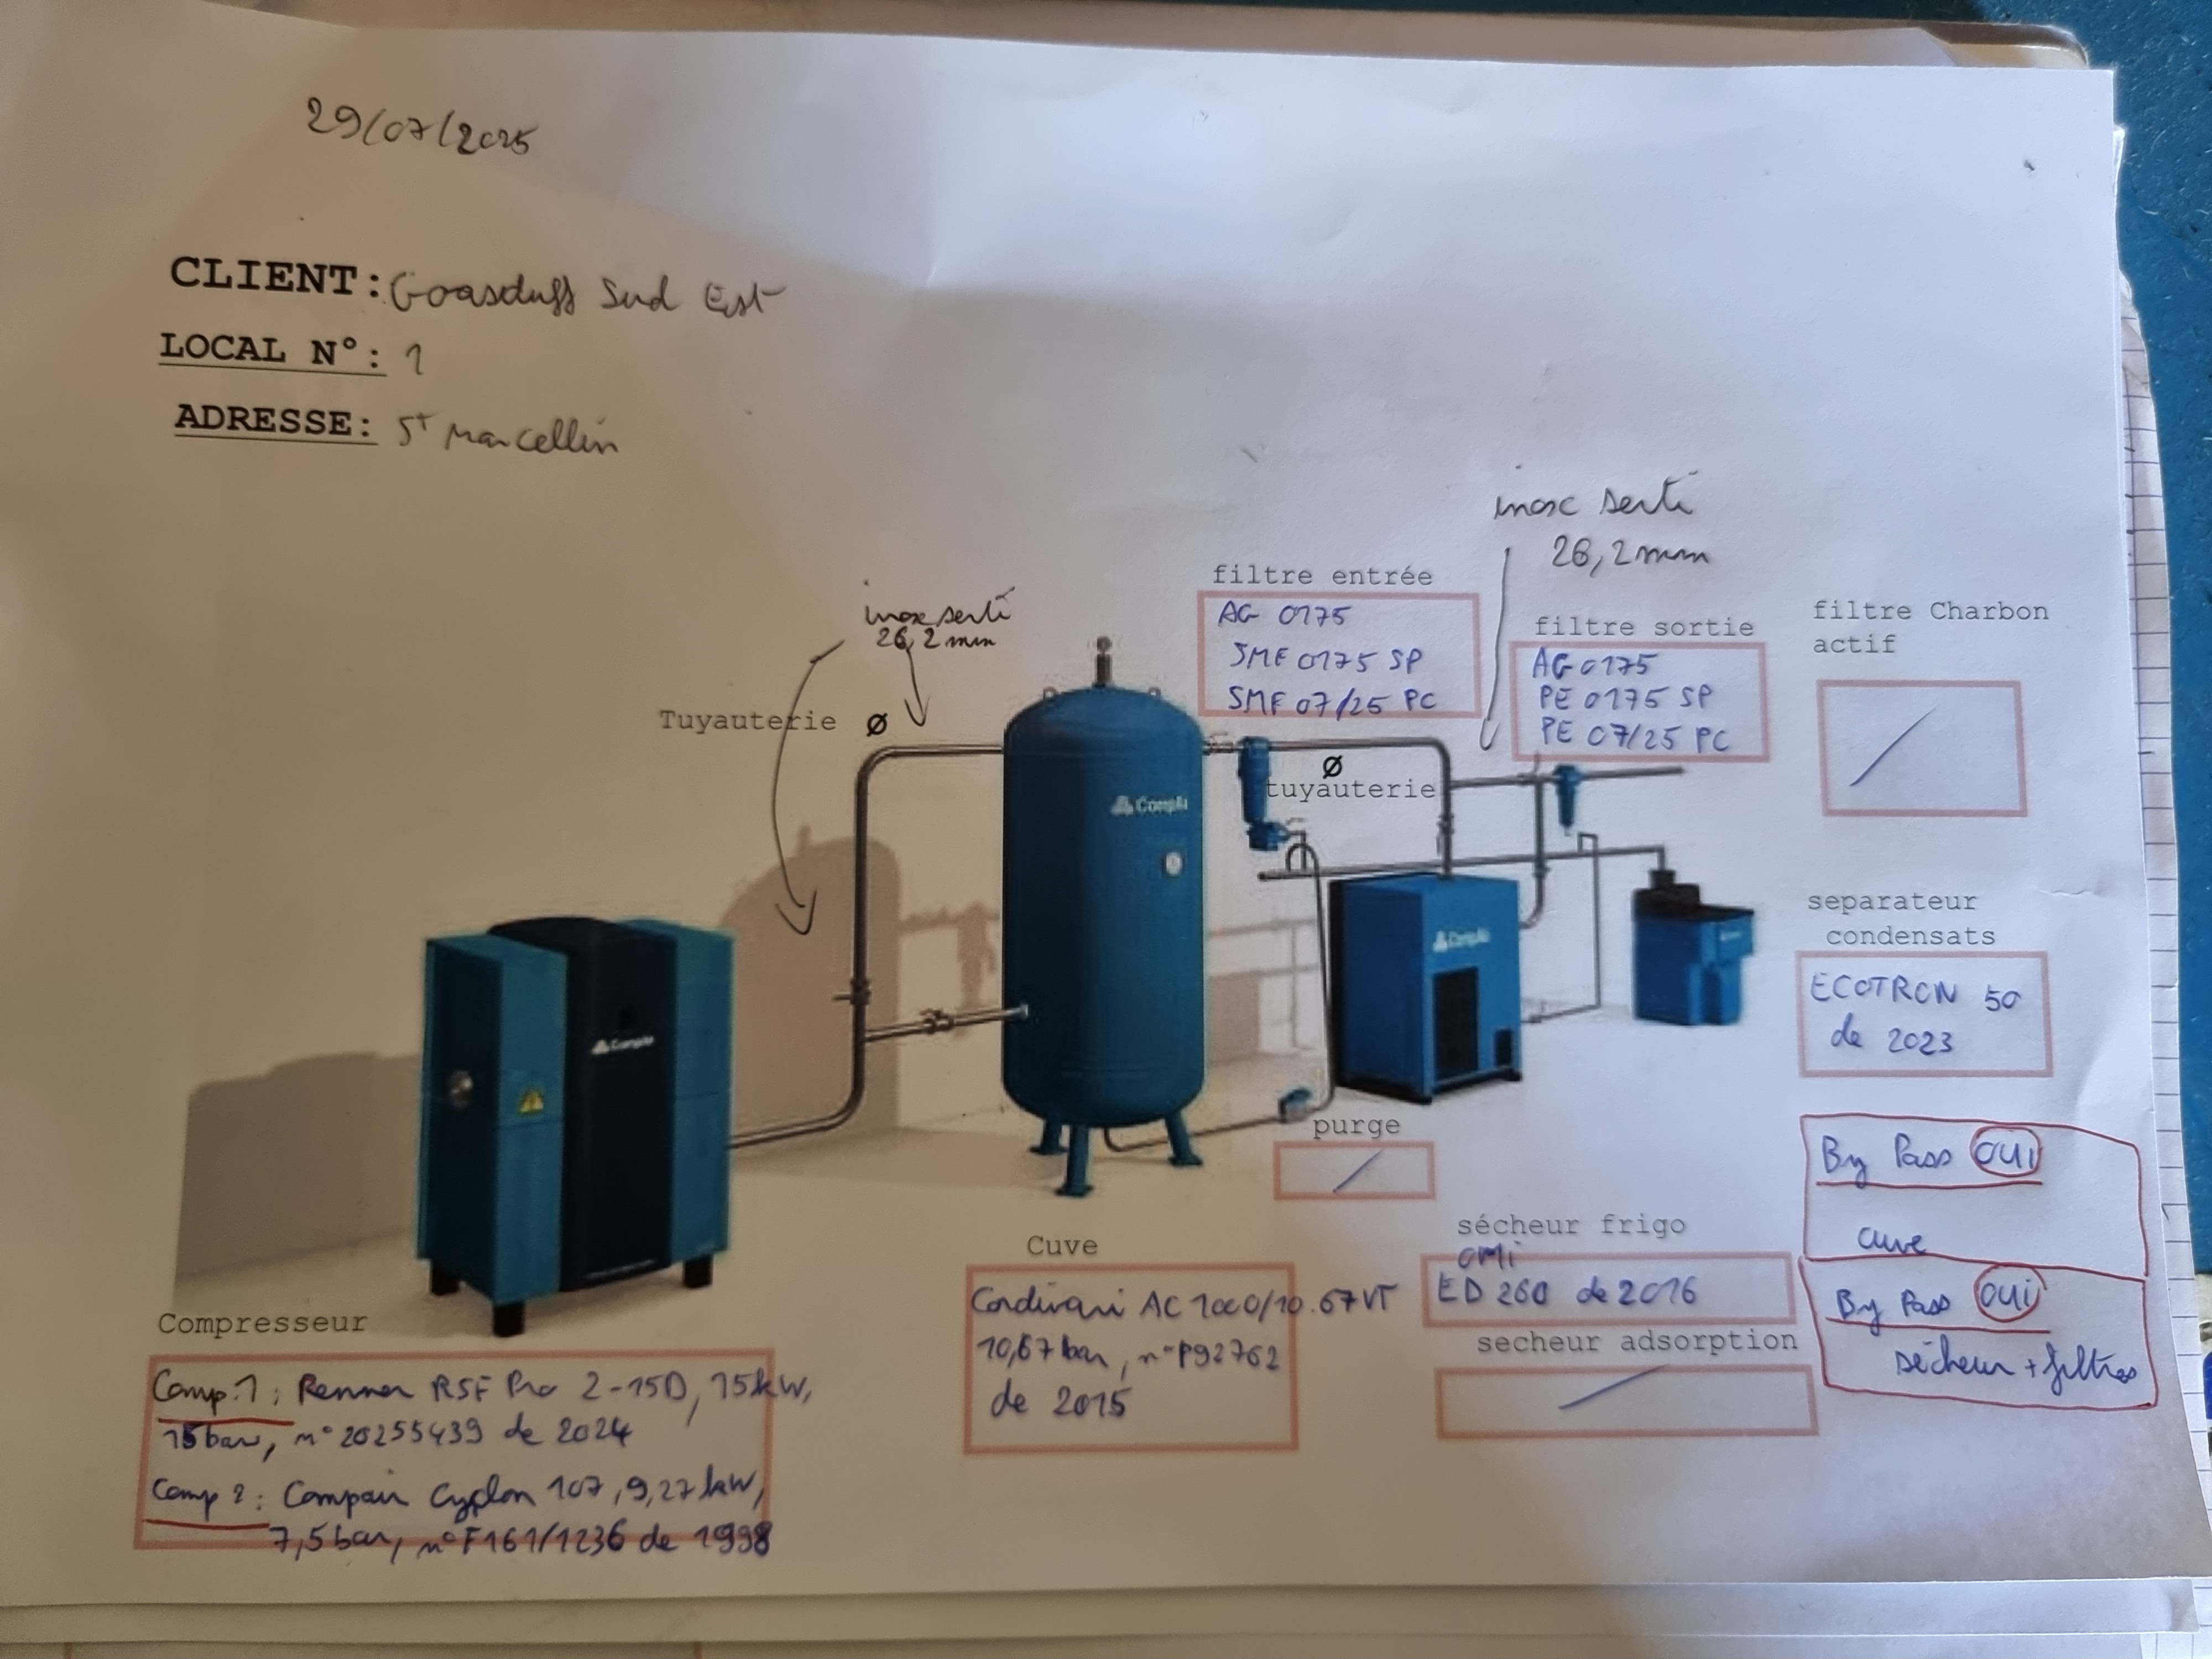 29/07/2025
CLIENT: Goasduff Sud Est
LOCAL N°: 1
ADRESSE: St Marcellin
inox serti
26,2 mm
filtre entrée
AG 0175
SMF 0175 SP
SMF 07/25 PC
inox serti
26,2mm
filtre sortie
AG 0175
PE 0175 SP
PE 07/25 PC
filtre Charbon
actif
Tuyauterie Ø
Ø
tuyauterie
CompAir
CompAir
CompAir
separateur
condensats
ECOTRON 50
de 2023
purge
By Pass OUI
cuve
By Pass OUI
sécheur + filtres
sécheur frigo
OMI
ED 260 de 2016
secheur adsorption
Cuve
Cordivari AC 1000/10.67 VT
10,67 bar, n° P92762
de 2015
Compresseur
Comp.1: Renner RSF Pro 2-15D, 15kW,
15bar, n° 20255439 de 2024
Comp 2: Compair Cyclon 107, 9,27 kW,
7,5 bar, n° F161/1236 de 1998